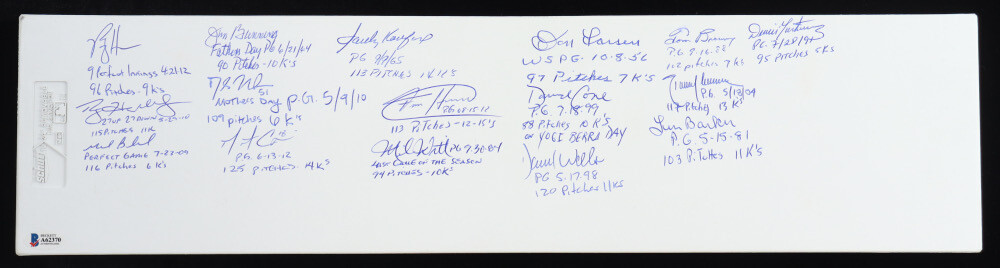 9 Perfect Innings 4.21.12
96 Pitches - 9 K's
27 UP 27 DOWN 5-29-10
115 PITCHES 11 K
PERFECT GAME 7-23-09
116 Pitches 6 K's
Jim Bunning
Fathers Day P.G. 6/21/64
90 Pitches - 10 K's
51
Mothers Day P.G. 5/9/10
109 pitches 6 K's
PG 6.13.12
125 PITCHES 14 K's
Sandy Koufax
P.G. 9/9/65
113 PITCHES 14 K's
PG 08.15.12
113 Pitches - 12 - K's
Mike Witt PG 9-30-84
LAST GAME OF THE SEASON
94 PITCHES - 10 K's
Don Larsen
WS P.G. - 10.8.56
97 Pitches 7 K's
David Cone
P.G. 7.18.99
88 Pitches 10 K's
on YOGI BERRA DAY
David Wells
PG 5.17.98
120 Pitches 11 Ks
Tom Browning
P.G. 9.16.88
102 pitches 7 Ks
P.G. 5/18/04
117 Pitches 13 K's
Len Barker
P.G. 5-15-81
103 Pitches 11 K's
Dennis Martinez
P.G. 7/28/91
95 Pitches 5 K's
schutt
BECKETT
A62370